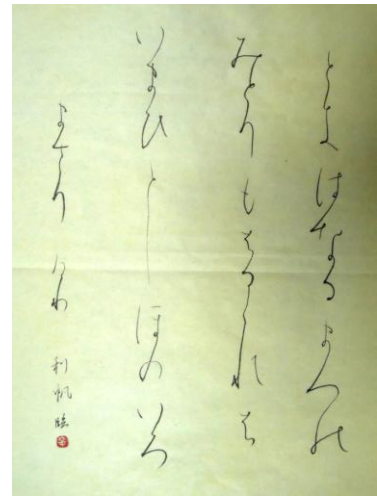 ときはなるまつの
みとりもはるくれは
いまひとしほのいろ
まさりけり 利帆臨